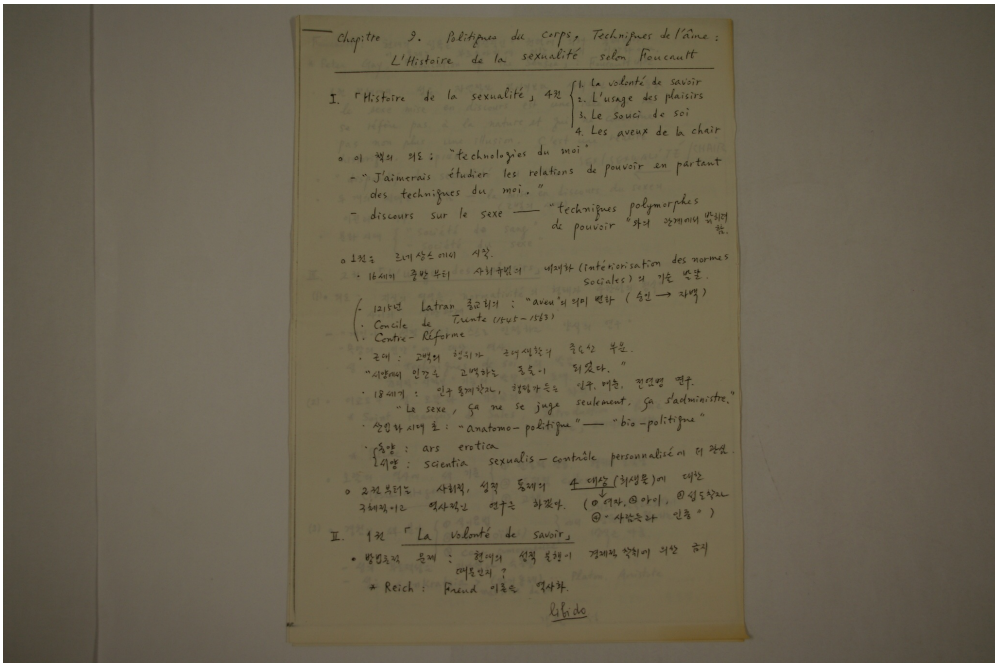 Chapitre 9. Politiques du corps, Techniques de l'âme :
L'Histoire de la sexualité selon Foucault
I. 「Histoire de la sexualité」 4권
1. La volonté de savoir
2. L'usage des plaisirs
3. Le souci de soi
4. Les aveux de la chair
o 이 책의 의도 : "technologies du moi"
- "J'aimerais étudier les relations de pouvoir en partant
des techniques du moi."
- discours sur le sexe — "techniques polymorphes
de pouvoir"와의 관계에서 밝히려
함.
o 1권은 르네상스에서 시작.
· 16세기 중반부터 사회규범의 내재화 (intériorisation des normes
sociales)의 기술 발달.
· 1215년 Latran 종교회의 : "aveu"의 의미 변화 ( 승인 → 자백)
· Concile de Trente (1545-1563)
· Contre-Réforme
· 근대 : 고백의 행위가 근대생활의 중요한 부분.
"서양에서 인간은 고백하는 동물이 되었다."
· 18세기 : 인구통계학자, 행정가들은 인구, 매춘, 전염병 연구.
"Le sexe, ça ne se juge seulement, ça s'administre."
· 산업화시대 초 : "anatomo-politique" — "bio-politique"
· 동양 : ars erotica
서양 : scientia sexualis - contrôle personnalisé에 더 관심.
o 2권부터는 사회적, 성적 통제의 4 대상 (희생물)에 대한
구체적이고 역사적인 연구를 하겠다. (① 여자, ② 아이, ③ 성도착자
④ " 사람들과 인종" )
II. 1권 「La volonté de savoir」
• 방법론적 문제 : 현대의 성적 불행이 경제적 착취에 의한 금지
때문인지 ?
* Reich : Freud 이론을 역사화.
libido